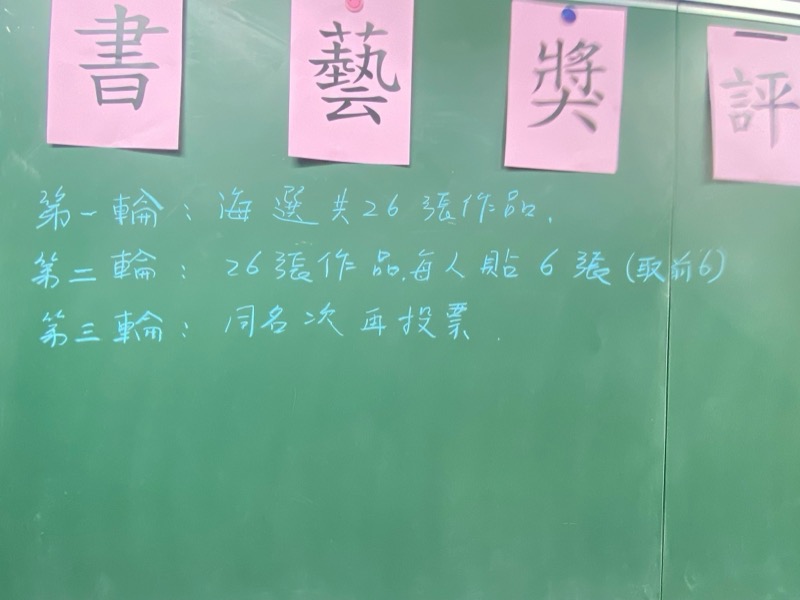 書藝獎評
第一輪：海選共26張作品.
第二輪：26張作品,每人貼6張(取前6)
第三輪：同名次再投票.